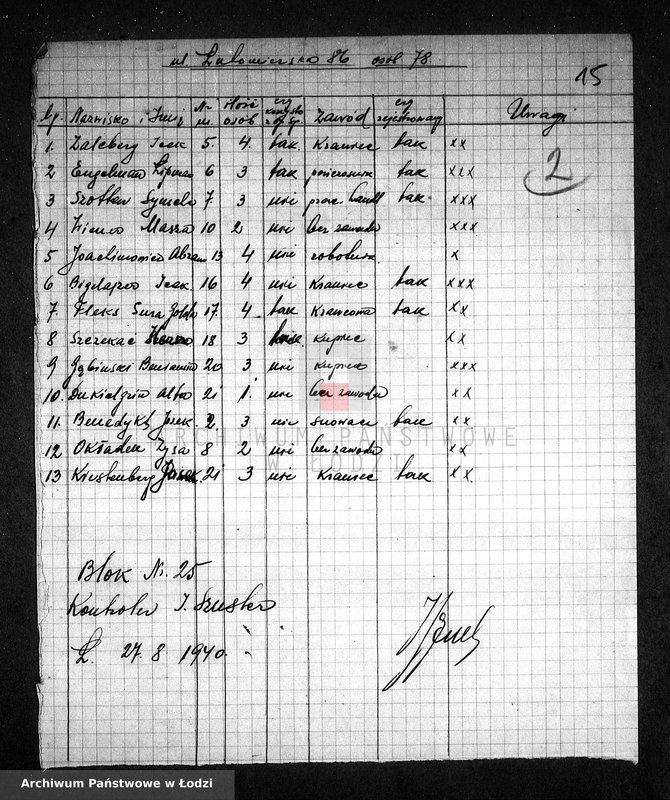 ul. Lutomierska 86 osób 78.
15
Lp. Nazwisko i Imię Nr m. ilość osób czy korzysta Zawód czy rejestrowany Uwagi
2
1. Zalcberg Icek 5. 4. tak Krawiec tak xx
2 Engelman Lipman 6 3 tak tak xxx
3 Szotten Symcha 7. 3 nie prac. handl tak xxx
4 Masza 10 2 nie bez zawodu xxx
5 Joachimowicz Abram 13 4 nie robotnik x
6 Icek 16 4 nie Krawiec tak xxx
7. Fleks Sura Golda 17. 4 tak Krawcowa tak xx
8 Szczekacz 18 3 kupiec xx
9 Gąbiński Beniamin 20 3 nie kupiec xxx
10. Alta 21 1. nie bez zawodu xx
11. Benedykt Josek 2. 3 nie snowacz tak xx
12 Okładek Zysa 8 2 nie bez zawodu xx
13 21 3 nie Krawiec tak xx
Blok Nr. 25
Kontroler I. Szuster
Ł. 27.8. 1940.
ARCHIWUM PAŃSTWOWE
W ŁODZI
Archiwum Państwowe w Łodzi